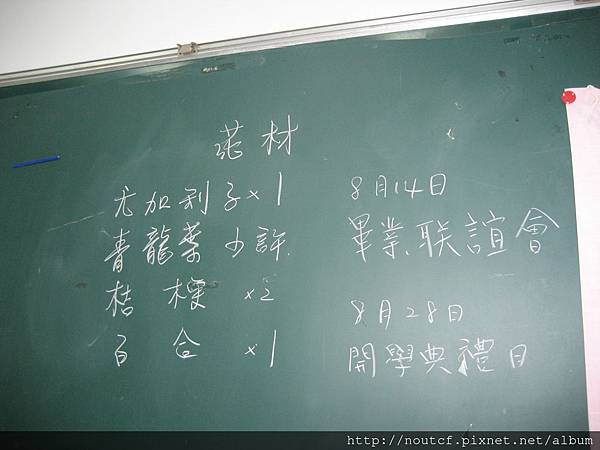 花材
尤加利子×1
青龍葉 少許.
桔梗 ×2
百合 ×1
8月14日
畢業.联誼會
8月28日
開學典禮日
http://noutcf.pixnet.net/album